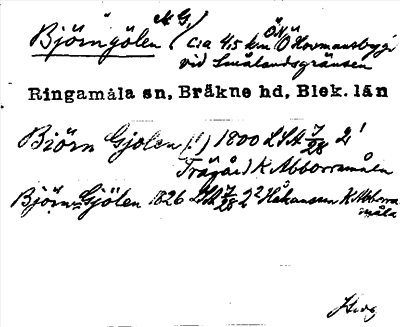 Björngölen M G, (ca 4,5 km ÖNÖ Hovmansbygd
vid Smålandsgränsen
Ringamåla sn, Bräkne hd, Blek. län
Biörn Gjölen (!) 1800 LSA 7/28 2¹
Trägård K Abborramåln
Björn Gjölen 1826 LSA 7/28 2² Håkansson K Abborra
måla